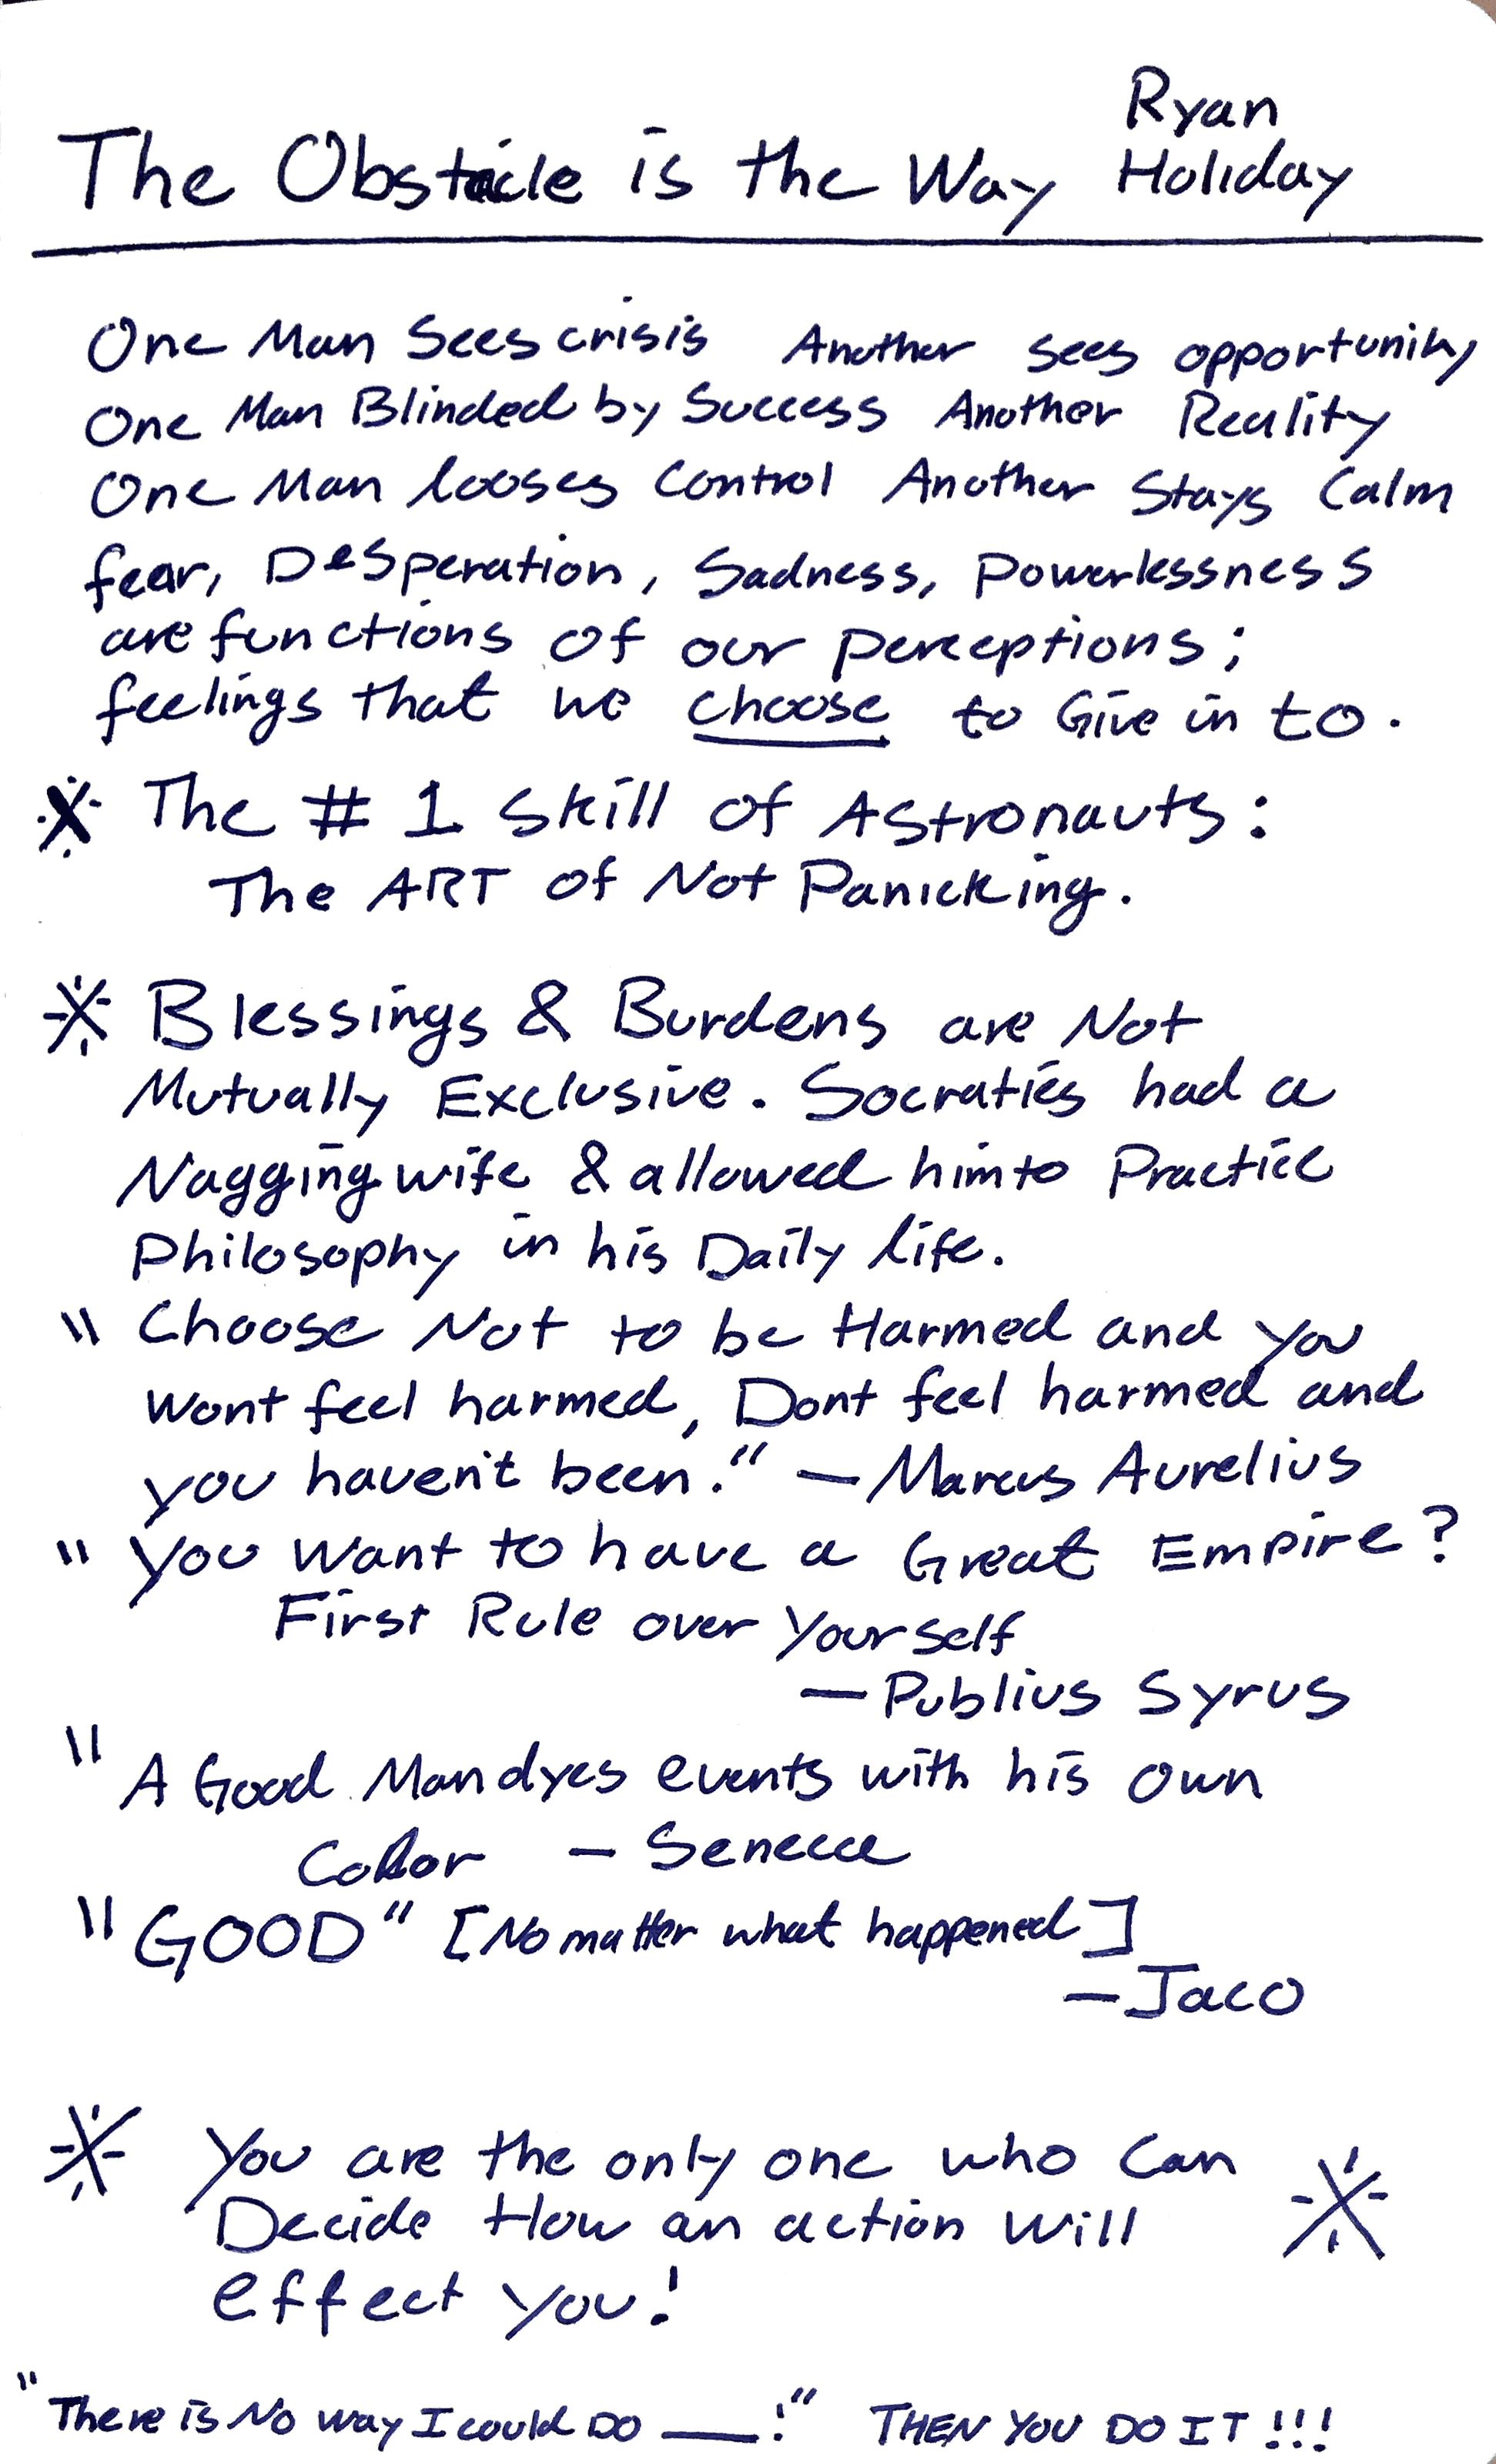 Ryan
The Obstacle is the Way Holiday
One Man Sees crisis Another sees opportunity
One Man Blinded by Success Another Reality
One Man looses Control Another Stays Calm
fear, Desperation, Sadness, Powerlessness
are functions of our perceptions;
feelings that we choose to Give in to.
※ The # 1 Skill of Astronauts:
The ART of Not Panicking.
※ Blessings & Burdens are Not
Mutually Exclusive. Socraties had a
Nagging wife & allowed him to Practice
Philosophy in his Daily life.
" Choose Not to be Harmed and you
wont feel harmed, Dont feel harmed and
you haven't been." — Marcus Aurelius
" You Want to have a Great Empire?
First Rule over Yourself
— Publius Syrus
" A Good Man dyes events with his own
Color — Seneca
"GOOD" [No matter what happened]
— Jaco
※ You are the only one who Can ※
Decide How an action Will
effect you!
"There is No way I could DO ___!" THEN YOU DO IT!!!